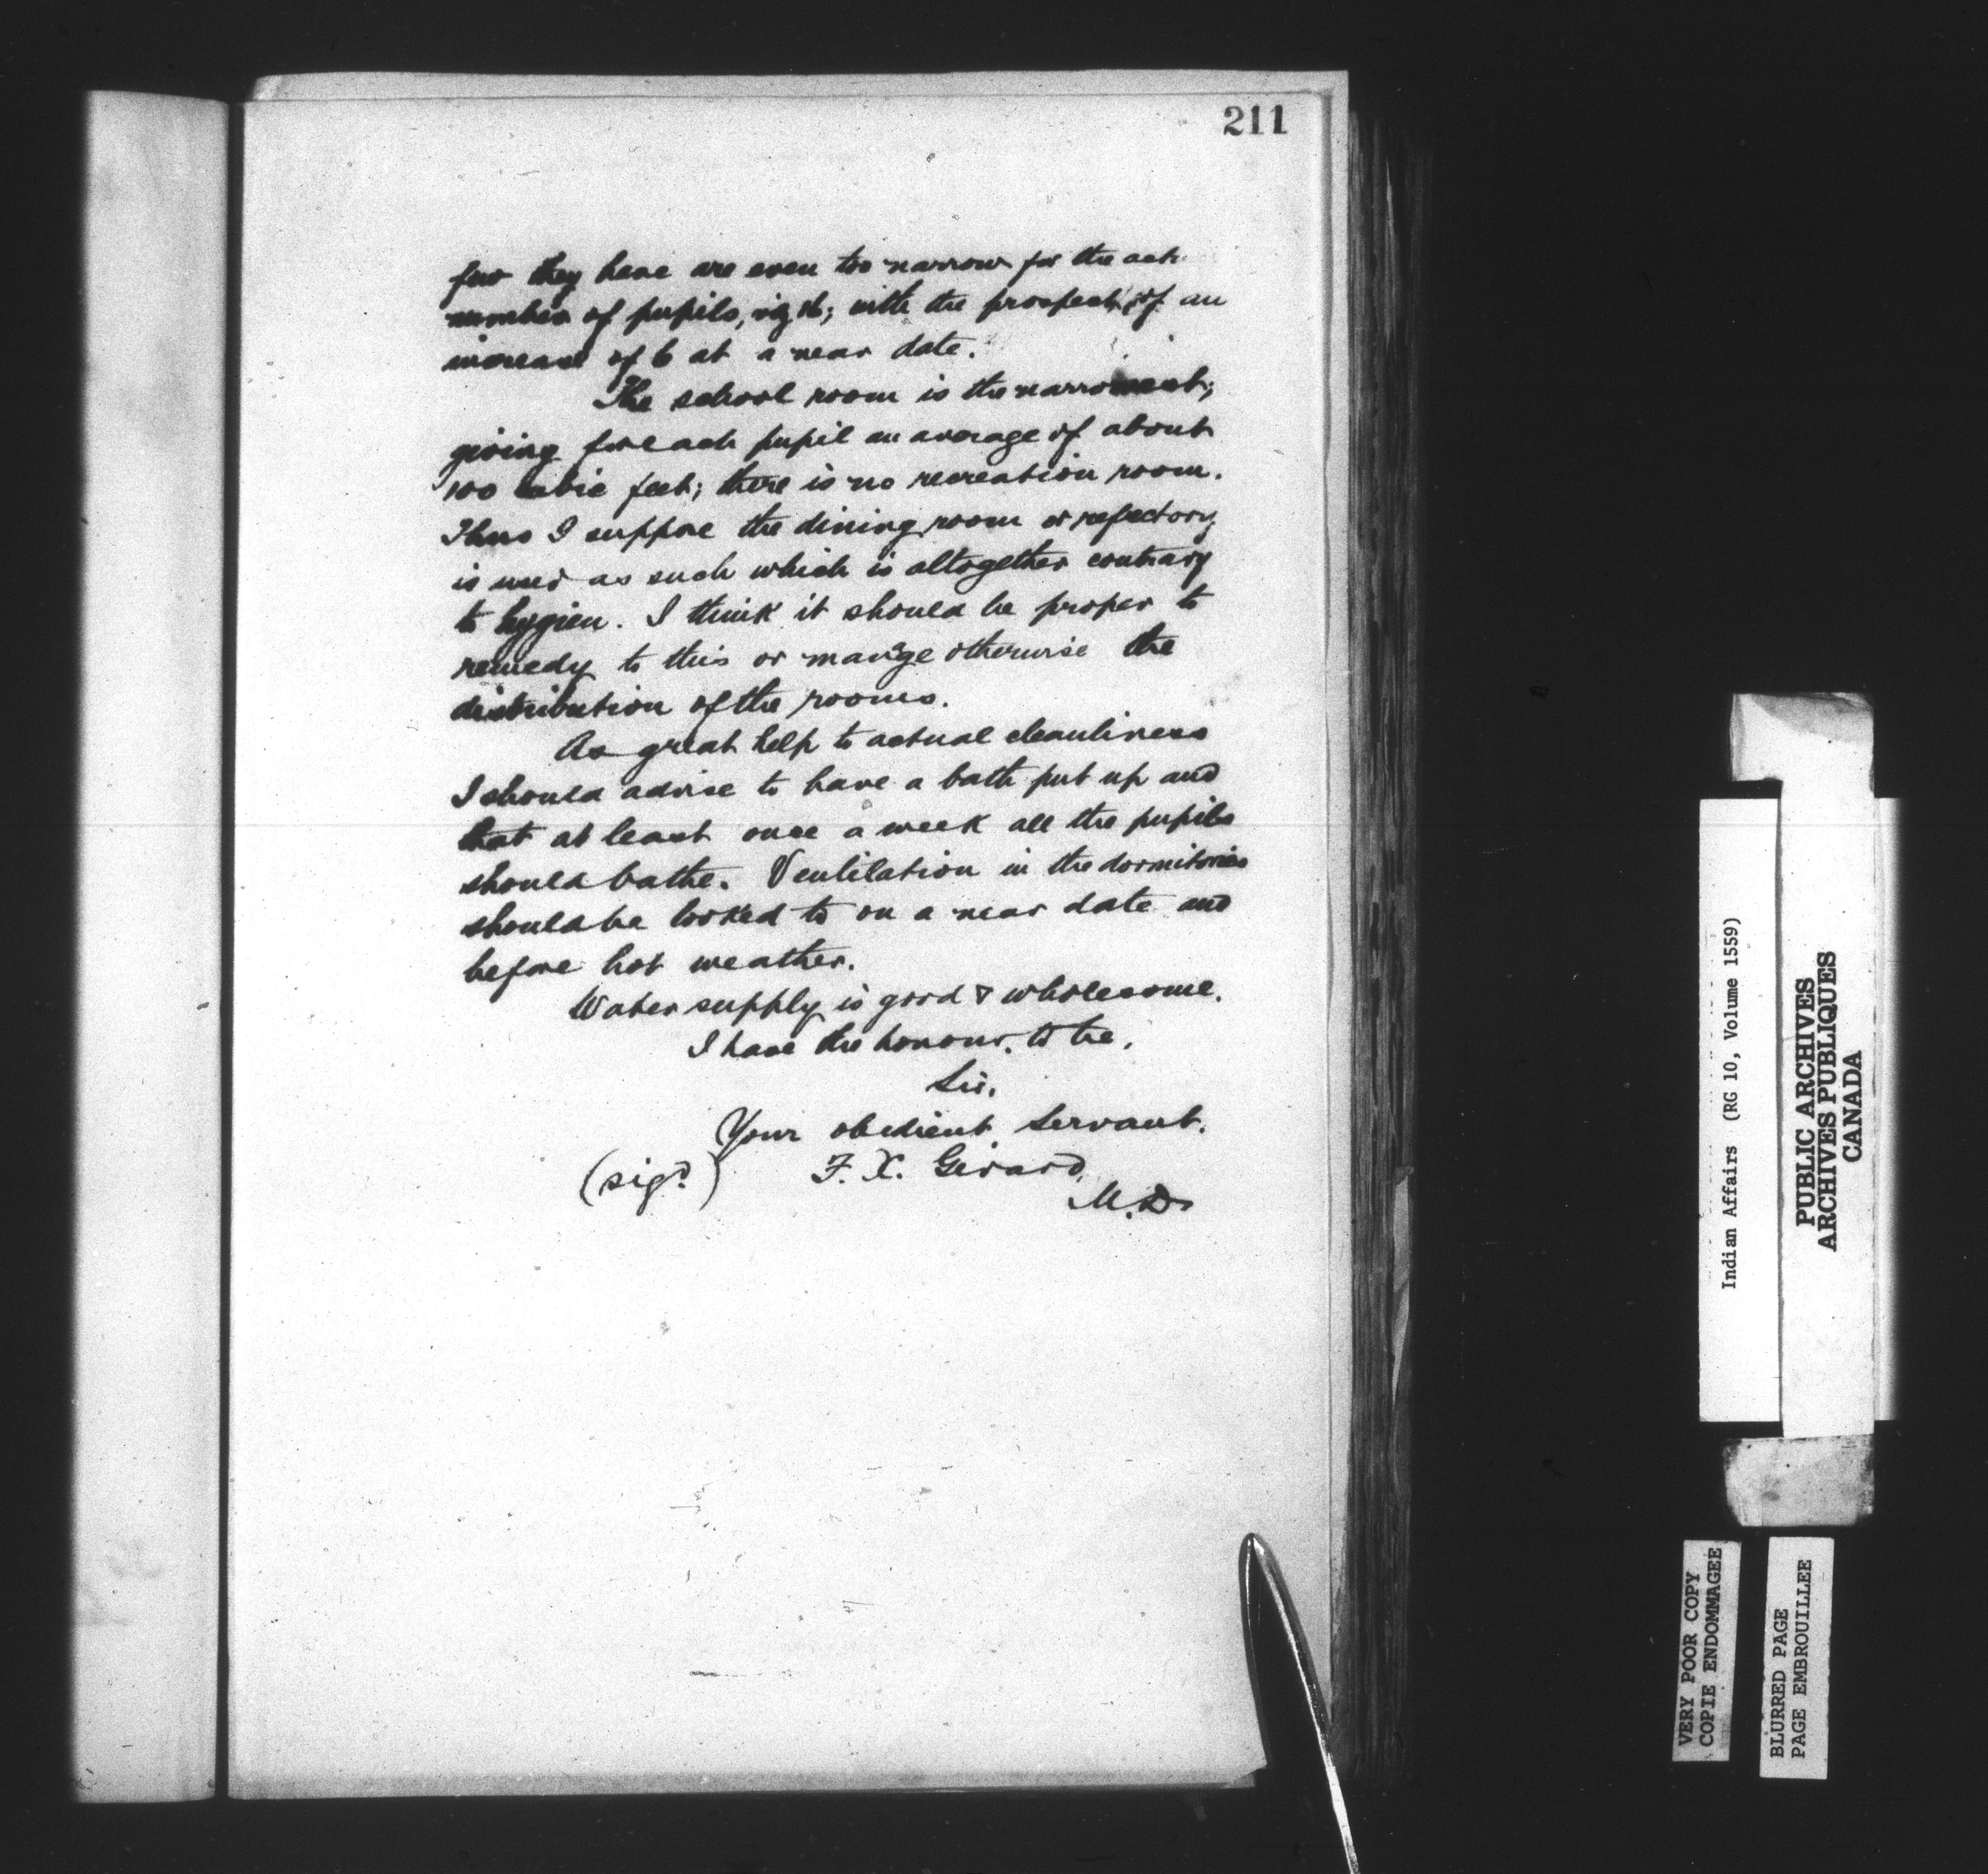 211
few they have are even too narrow for the
number of pupils, viz 16; with the prospect of an
increase of 6 at a near date.
The school room is the narrowest;
giving for each pupil an average of about
100 cubic feet; there is no recreation room.
Thus I suppose the dining room or refectory
is used as such which is altogether contrary
to hygien. I think it should be proper to
remedy to this or otherwise the
distribution of the rooms.
As great help to actual cleanliness
I should advise to have a bath put up and
that at least once a week all the pupils
should bathe. Ventilation in the dormitories
should be looked to on a near date and
before hot weather.
Water supply is good & wholesome.
I have the honour, to be,
Sir,
Your obedient Servant.
(sigd) F. X. Girard,
M.D.
Indian Affairs (RG 10, Volume 1559)
PUBLIC ARCHIVES
ARCHIVES PUBLIQUES
CANADA
VERY POOR COPY
COPIE ENDOMMAGEE
BLURRED PAGE
PAGE EMBROUILLEE